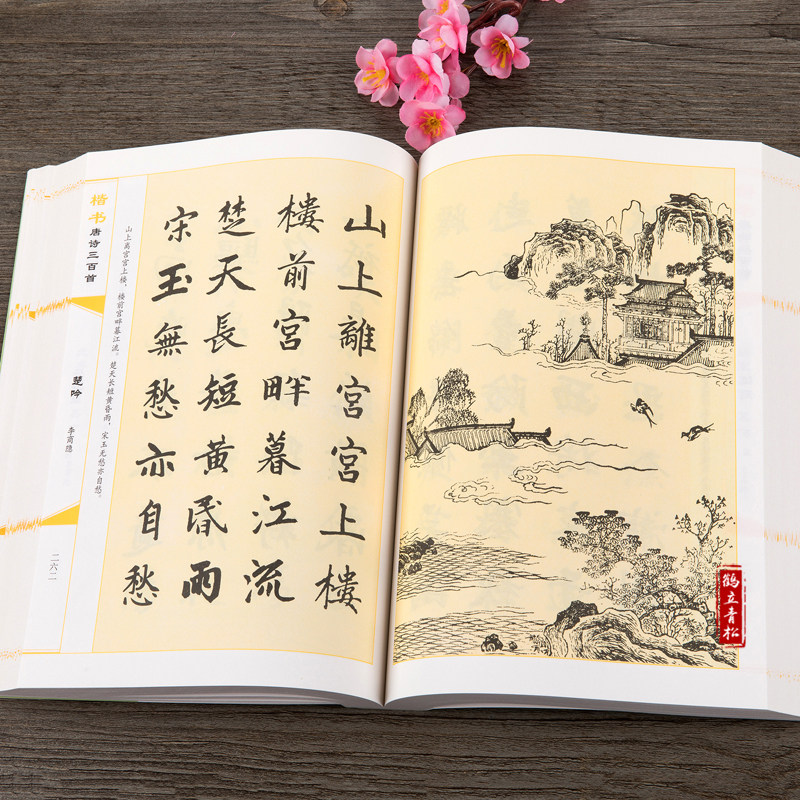 山上離宮宮上樓
樓前宮畔暮江流
楚天長短黄昏雨
宋玉無愁亦自愁
山上离宫宫上楼，楼前宫畔暮江流。楚天长短黄昏雨，宋玉无愁亦自愁。
楷书
唐诗三百首
楚吟
李商隐
二六二
鹤立青松